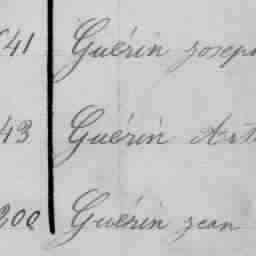 41 Guérin josep
43 Guérin Art
200 Guérin jean